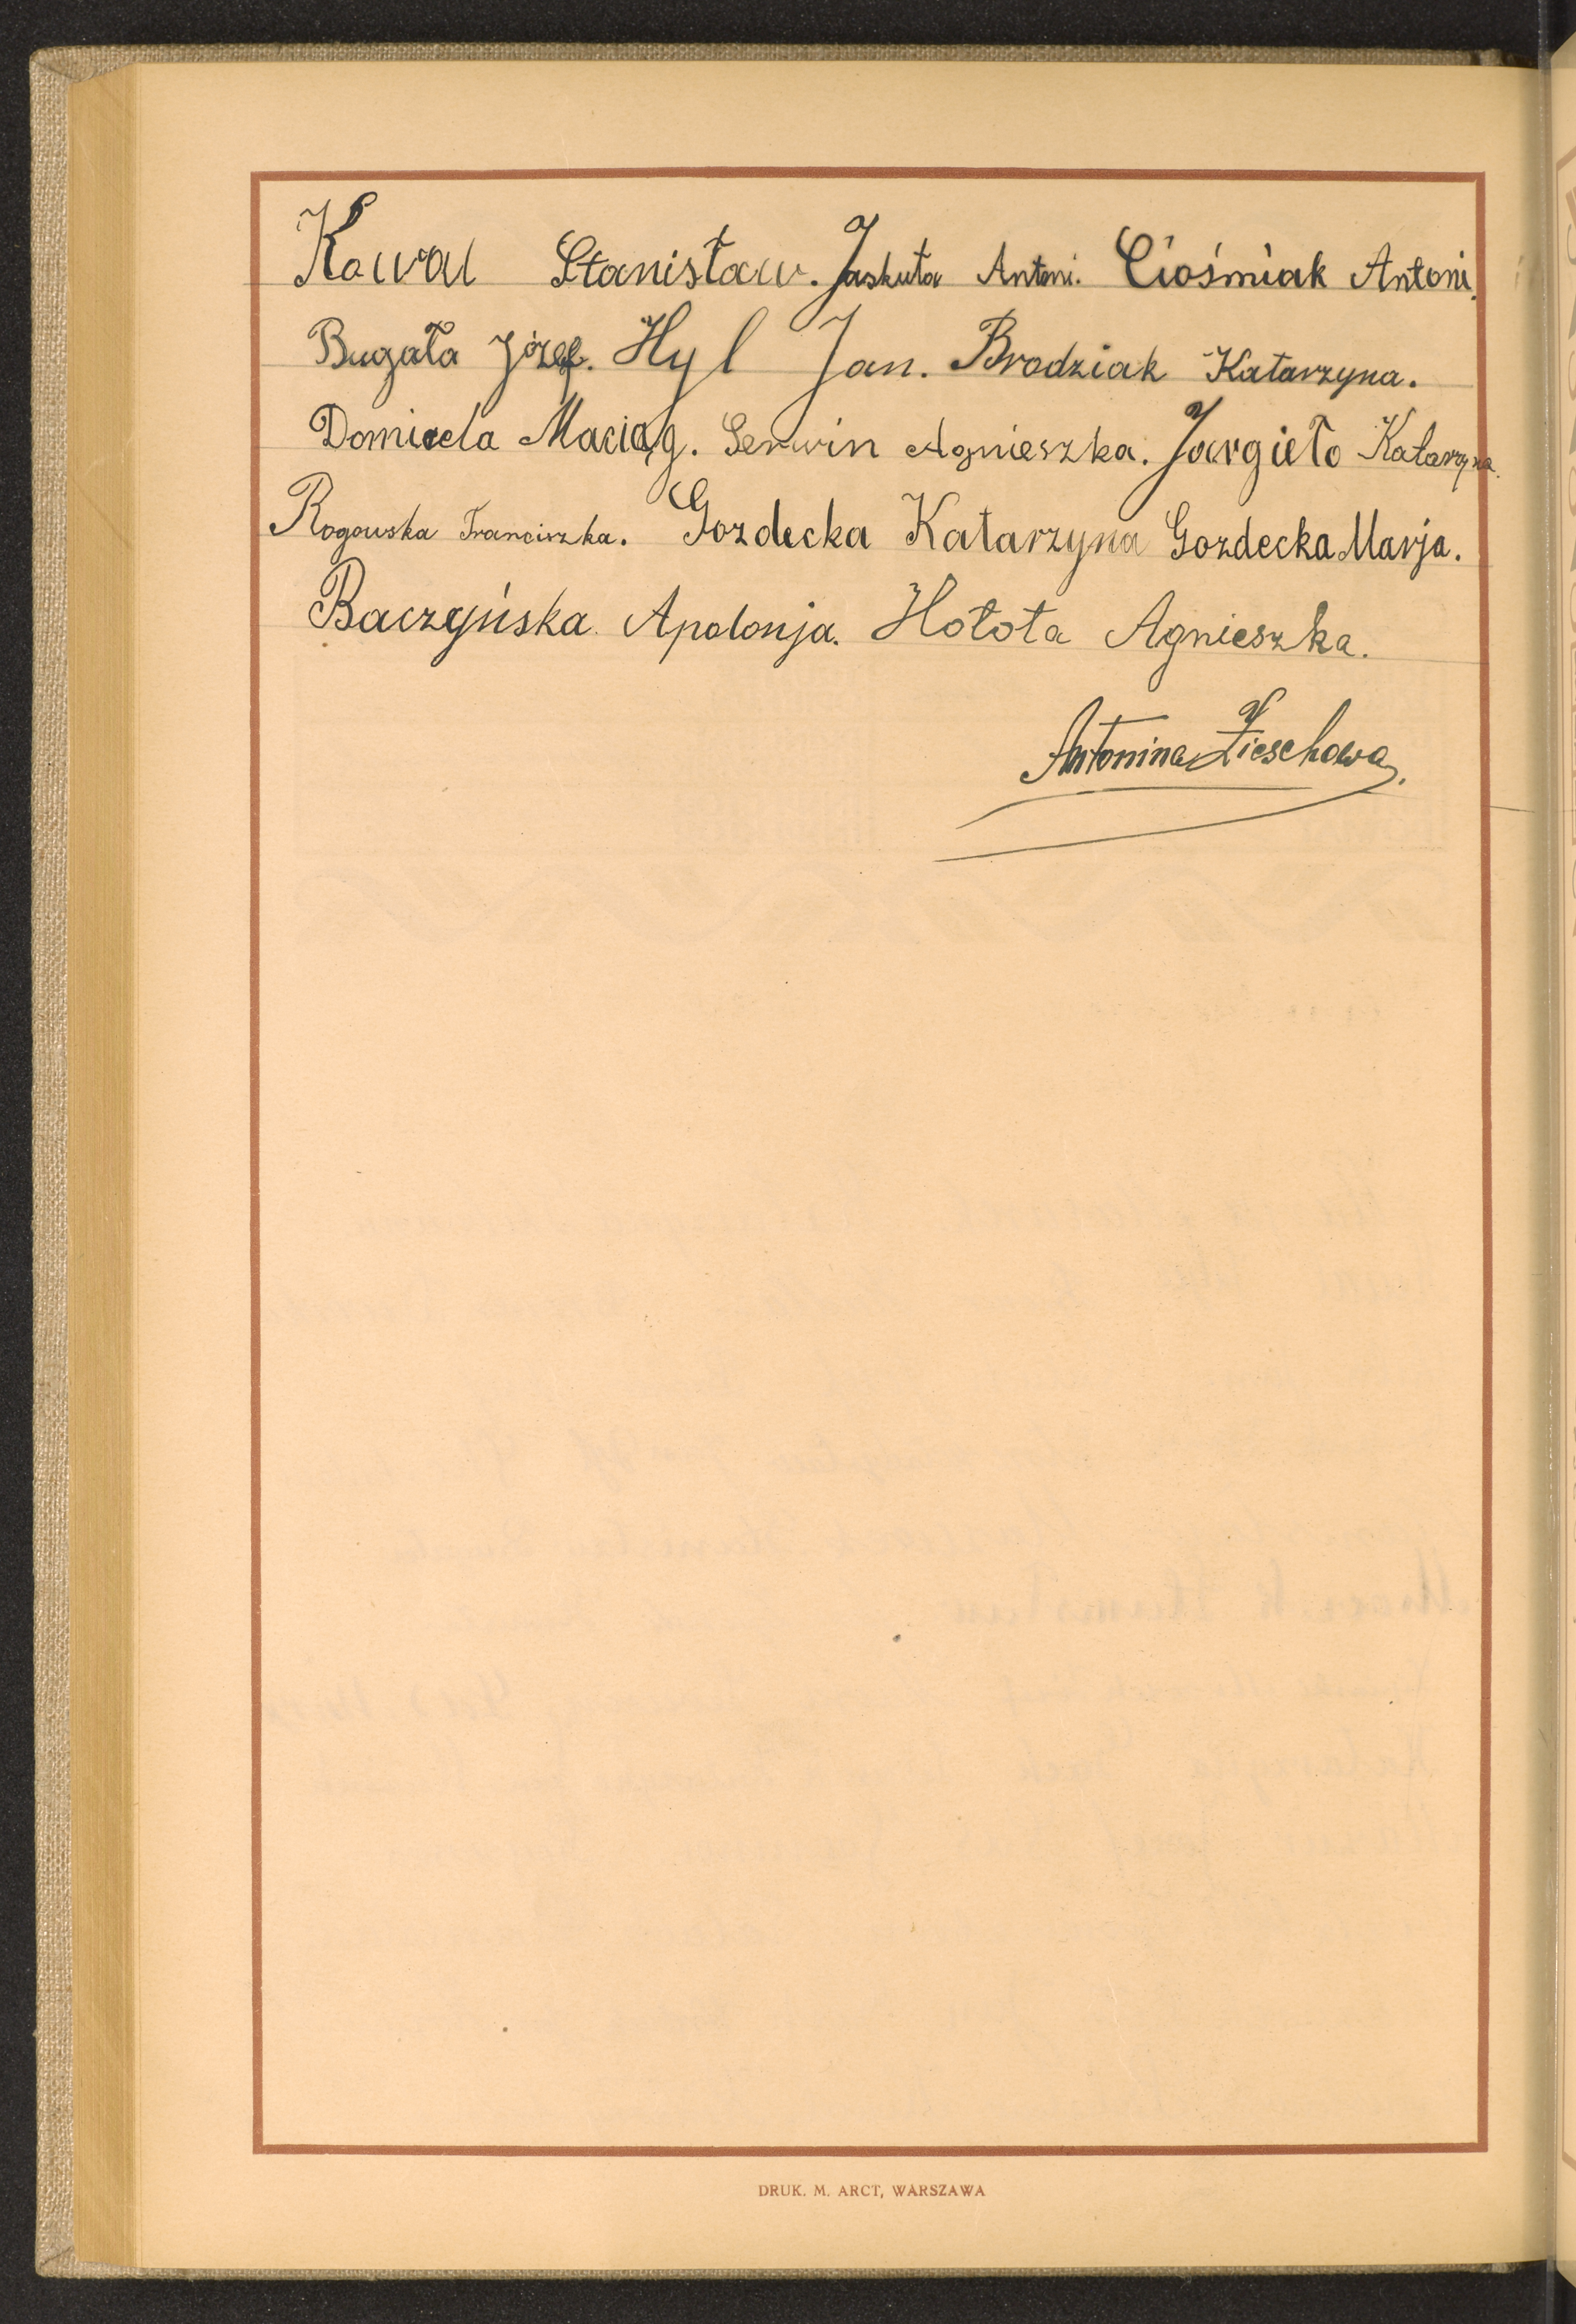 Kawal Stanisław. Jaskuła Antoni. Ciośmiak Antoni.
Bugała Józef. Hyl Jan. Brodziak Katarzyna.
Domicela Maciąg. Serwin Agnieszka. Jargieło Katarzyna.
Rogowska Franciszka. Gozdecka Katarzyna Gozdecka Marja.
Baczyńska Apolonja. Hołota Agnieszka.
Antonina Zieschowa.
DRUK. M. ARCT, WARSZAWA